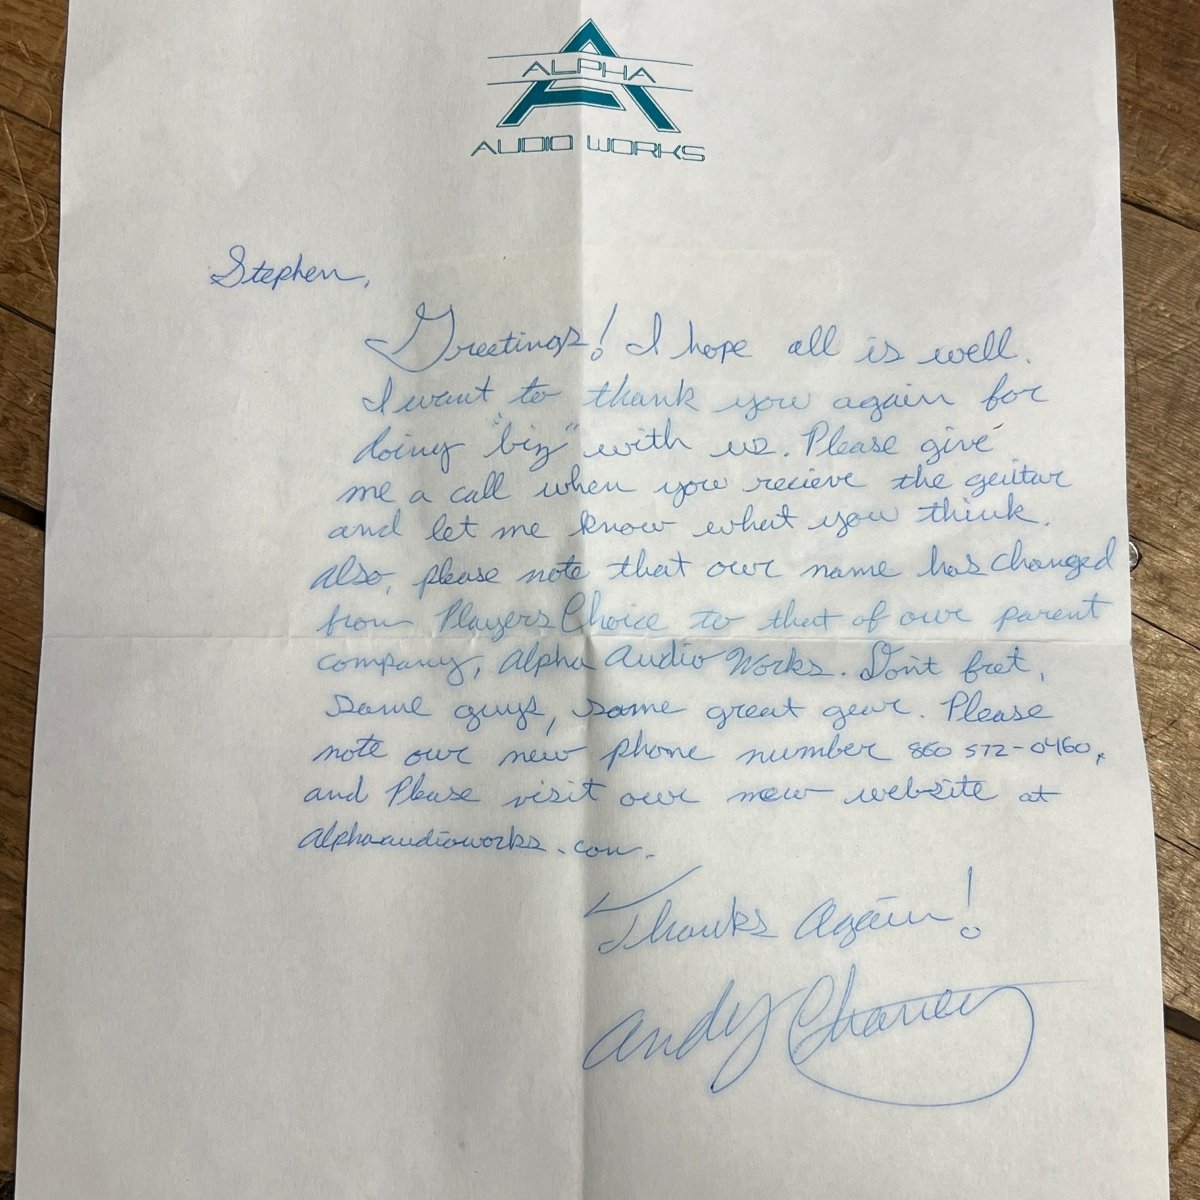 ALPHA
AUDIO WORKS
Stephen,
Greetings! I hope all is well.
I want to thank you again for
doing "biz" with us. Please give
me a call when you recieve the guitar
and let me know what you think.
Also, please note that our name has changed
from Players Choice to that of our parent
company, Alpha Audio Works. Don't fret,
same guys, same great gear. Please
note our new phone number 860 572-0460,
and Please visit our new website at
alphaaudioworks.com.
Thanks Again!
Andy